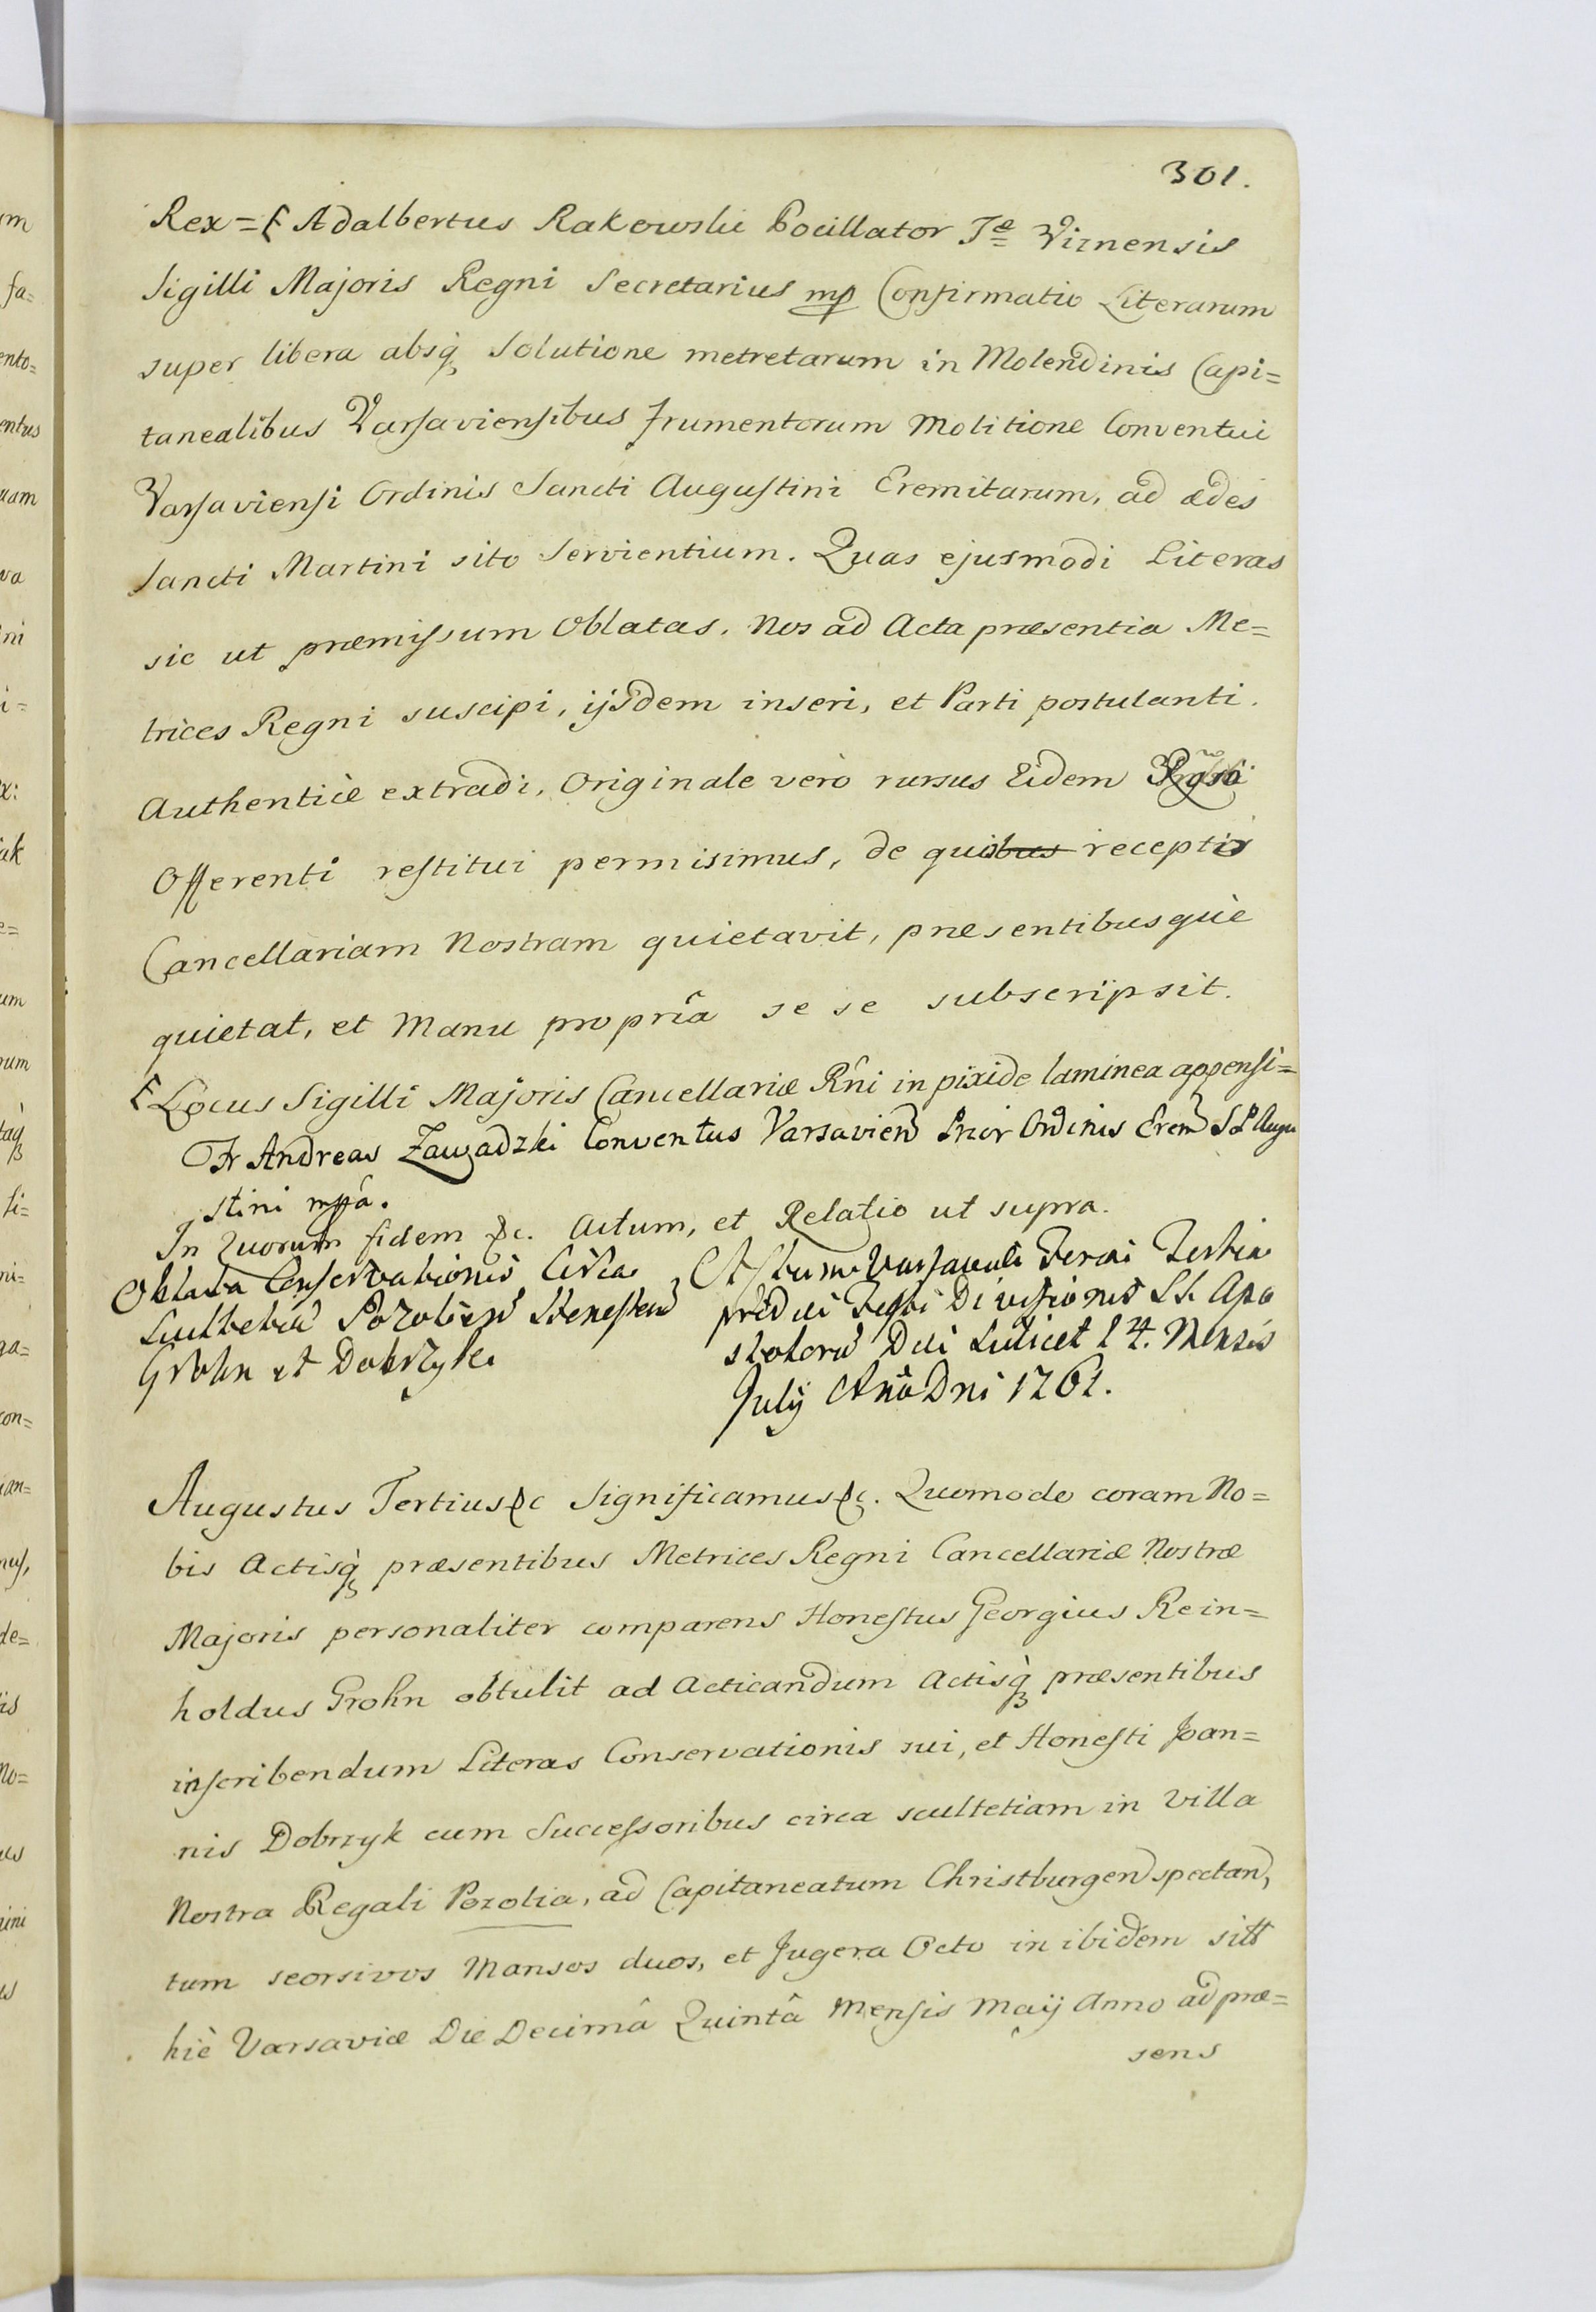 301.
Rex = ⁅ Adalbertus Rakowski Pocillator Tæ Viznensis
Sigilli Majoris Regni Secretarius mp Confirmatio Literarum
super libera absq̀ꝫ Solutione metretarum in Molendinis Capi=
tanealibus Varsaviensibus frumentorum Molitione Conventui
Varsaviensi Ordinis Sancti Augustini Eremitarum, ad ædes
Sancti Martini sito Servientium. Quas ejusmodi Literas
sic ut præmissum Oblatas. Nos ad Acta præsentia Me=
trices Regni suscipi, ijsdem inseri, et Parti postulanti.
Authenticè extradi, Originale verò rursus Eidem
Offerenti restitui permisimus, de quibus receptis
Cancellariam Nostram quietavit, præsentibusquè
quietat, et Manu propriâ se se subscripsit.
⁅ Locus Sigilli Majoris Cancellariæ Rñi in pixide laminea appensi=
Fr Andreas Zawadzki Conventus Varsavien Prior Ordinis Erem S P Augu
stini mppâ.
In Quorum fidem &c. Actum, et Relatio ut supra.
Oblata Conservationis Circa
Scultetia Pozolien
Grohn et Dobrzyk.
Actum Varsaviæ Feria Tertia
pridie Festi Divisionis SS. Apo
stolorũ Die Scilicet 14. Mensis
July Año Dni 1761.
Augustus Tertius &c Significamus &c. Quomodo coram No=
bis Actisq̀ꝫ præsentibus Metrices Regni Cancellariæ Nostræ
Majoris personaliter comparens Honestus Georgius Rein=
holdus Grohn obtulit ad Acticandum Actisq̀ꝫ præsentibus
inscribendum Literas Conservationis sui, et Honesti Joan=
nis Dobrzyk cum Successoribus circa scultetiam in Villa
Nostra Regali Pozolia, ad Capitaneatum Christburgen spectan,
tum seorsivos Mansos duos, et Jugera Octo in ibidem
hiè Varsaviæ Die Decimâ Quintâ Mensis Maij Anno ad præ=
sens